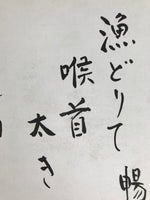 漁どりて
喉首
太き
暢